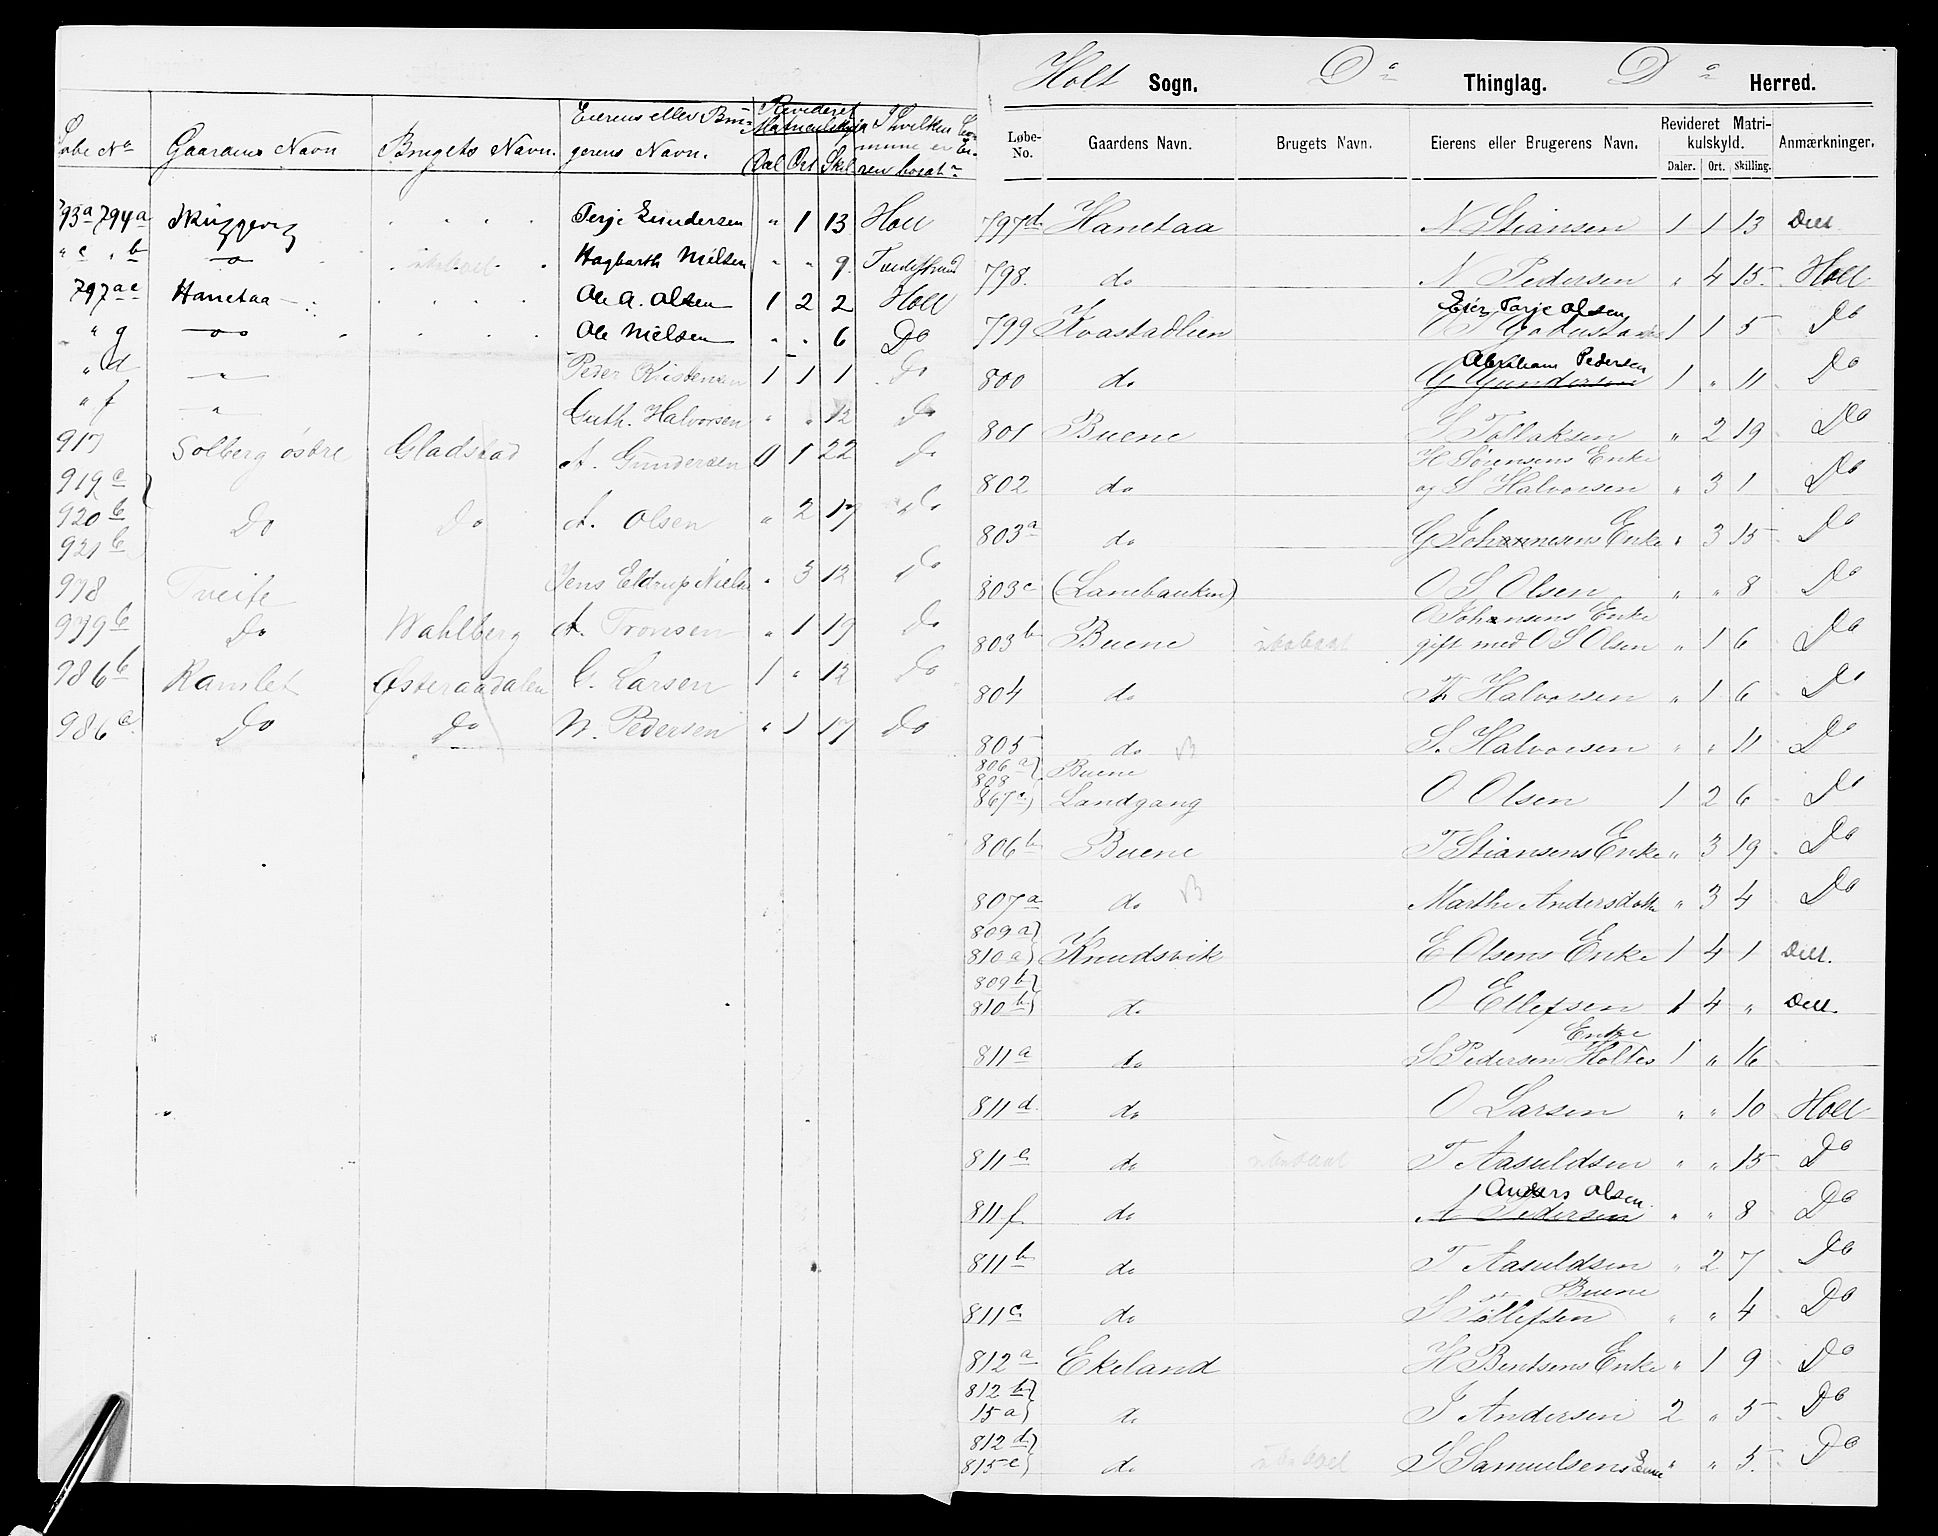 Løbe No Gaardens Navn Brugets Navn. Eierens eller Bru-
gerens Navn. Revideret
Matriculskyld
Dal Ort Skil I hvilken Co-
mune er Ei-
eren bosat
793a 794a Skuggevig Terje Gundersen " 1 13 Holt
" c " b do ubeboet Hagbarth Nielsen " " 9 Tvedestrand
797ae Hanetaa Ole A. Olsen 1 2 2 Holt
" g do Ole Nielsen " " 6 Do
" d " Peder Kristensen 1 1 1 Do
" f " Guth. Halvorsen " " 12 Do
917 Solberg östre Gladstad A. Gundersen 0 1 22 Do
919c
920b Do Do A. Olsen " 2 17 Do
921b
978 Tveite Jens Eldrup Nielsen " 3 12 Do
979b Do Wahlberg A. Tronsen " 1 19 Do
986b Ramlet Østeraadalen G. Larsen 1 " 12 Do
986a Do Do N. Pedersen " 1 17 Do
Holt Sogn. Do Thinglag. Do Herred.
Løbe-
No. Gaardens Navn. Brugets Navn. Eierens eller Brugerens Navn. Revideret Matri-
kulskyld. Anmærkninger.
Daler. Ort. Skilling.
797d Hanetaa N Stiansen 1 1 13 Delt.
798. do N Pedersen " 4 15 Holt
Eier Terje Olsen
799 Kvastadlien 1 1 5 Do
Abraham Pedersen
800 do G Gundersen 1 " 11 Do
801 Buene S Tollaksen " 2 19 Do
H Sørensens Enke
802 do og S Halvorsen " 3 1 Do
803a do G Johannesens Enke " 3 15 Do
803c (Lanebakken) O S Olsen " " 8 Do
O Johansens Enke
803b Buene ubeboet gift med O S Olsen " 1 6 Do
804 do Th Halvorsen " 1 6 Do
805 do B S. Halvorsen " " 11 Do
806a Buene
808
867a Landgang O Olsen 1 2 6 Do
806b Buene T Stiansens Enke " 3 19 Do
807a do B Marthe Andersdatter " 3 4 Do
809a
810a Knudsvik E Olsens Enke 1 4 1 Delt.
809b
810b do O Ellefsen 1 4 " Delt.
Enke
811a do S Pedersen Holtes 1 " 16
811d do O Larsen " " 10 Holt
811e do ubeboet T Aasuldsen " " 15 Do
Anders Olsen
811f do A Pedersen " " 8 Do
811b do T Aasuldsen " 2 7 Do
Buene
811c do S Tollefsen " " 4 Do
812a Ekeland H Bentsens Enke " 1 9 Do
812b
15a do J Andersen 2 " 5 Do
812d
815c do ubeboet S Samuelsens Enke " " 5 Do